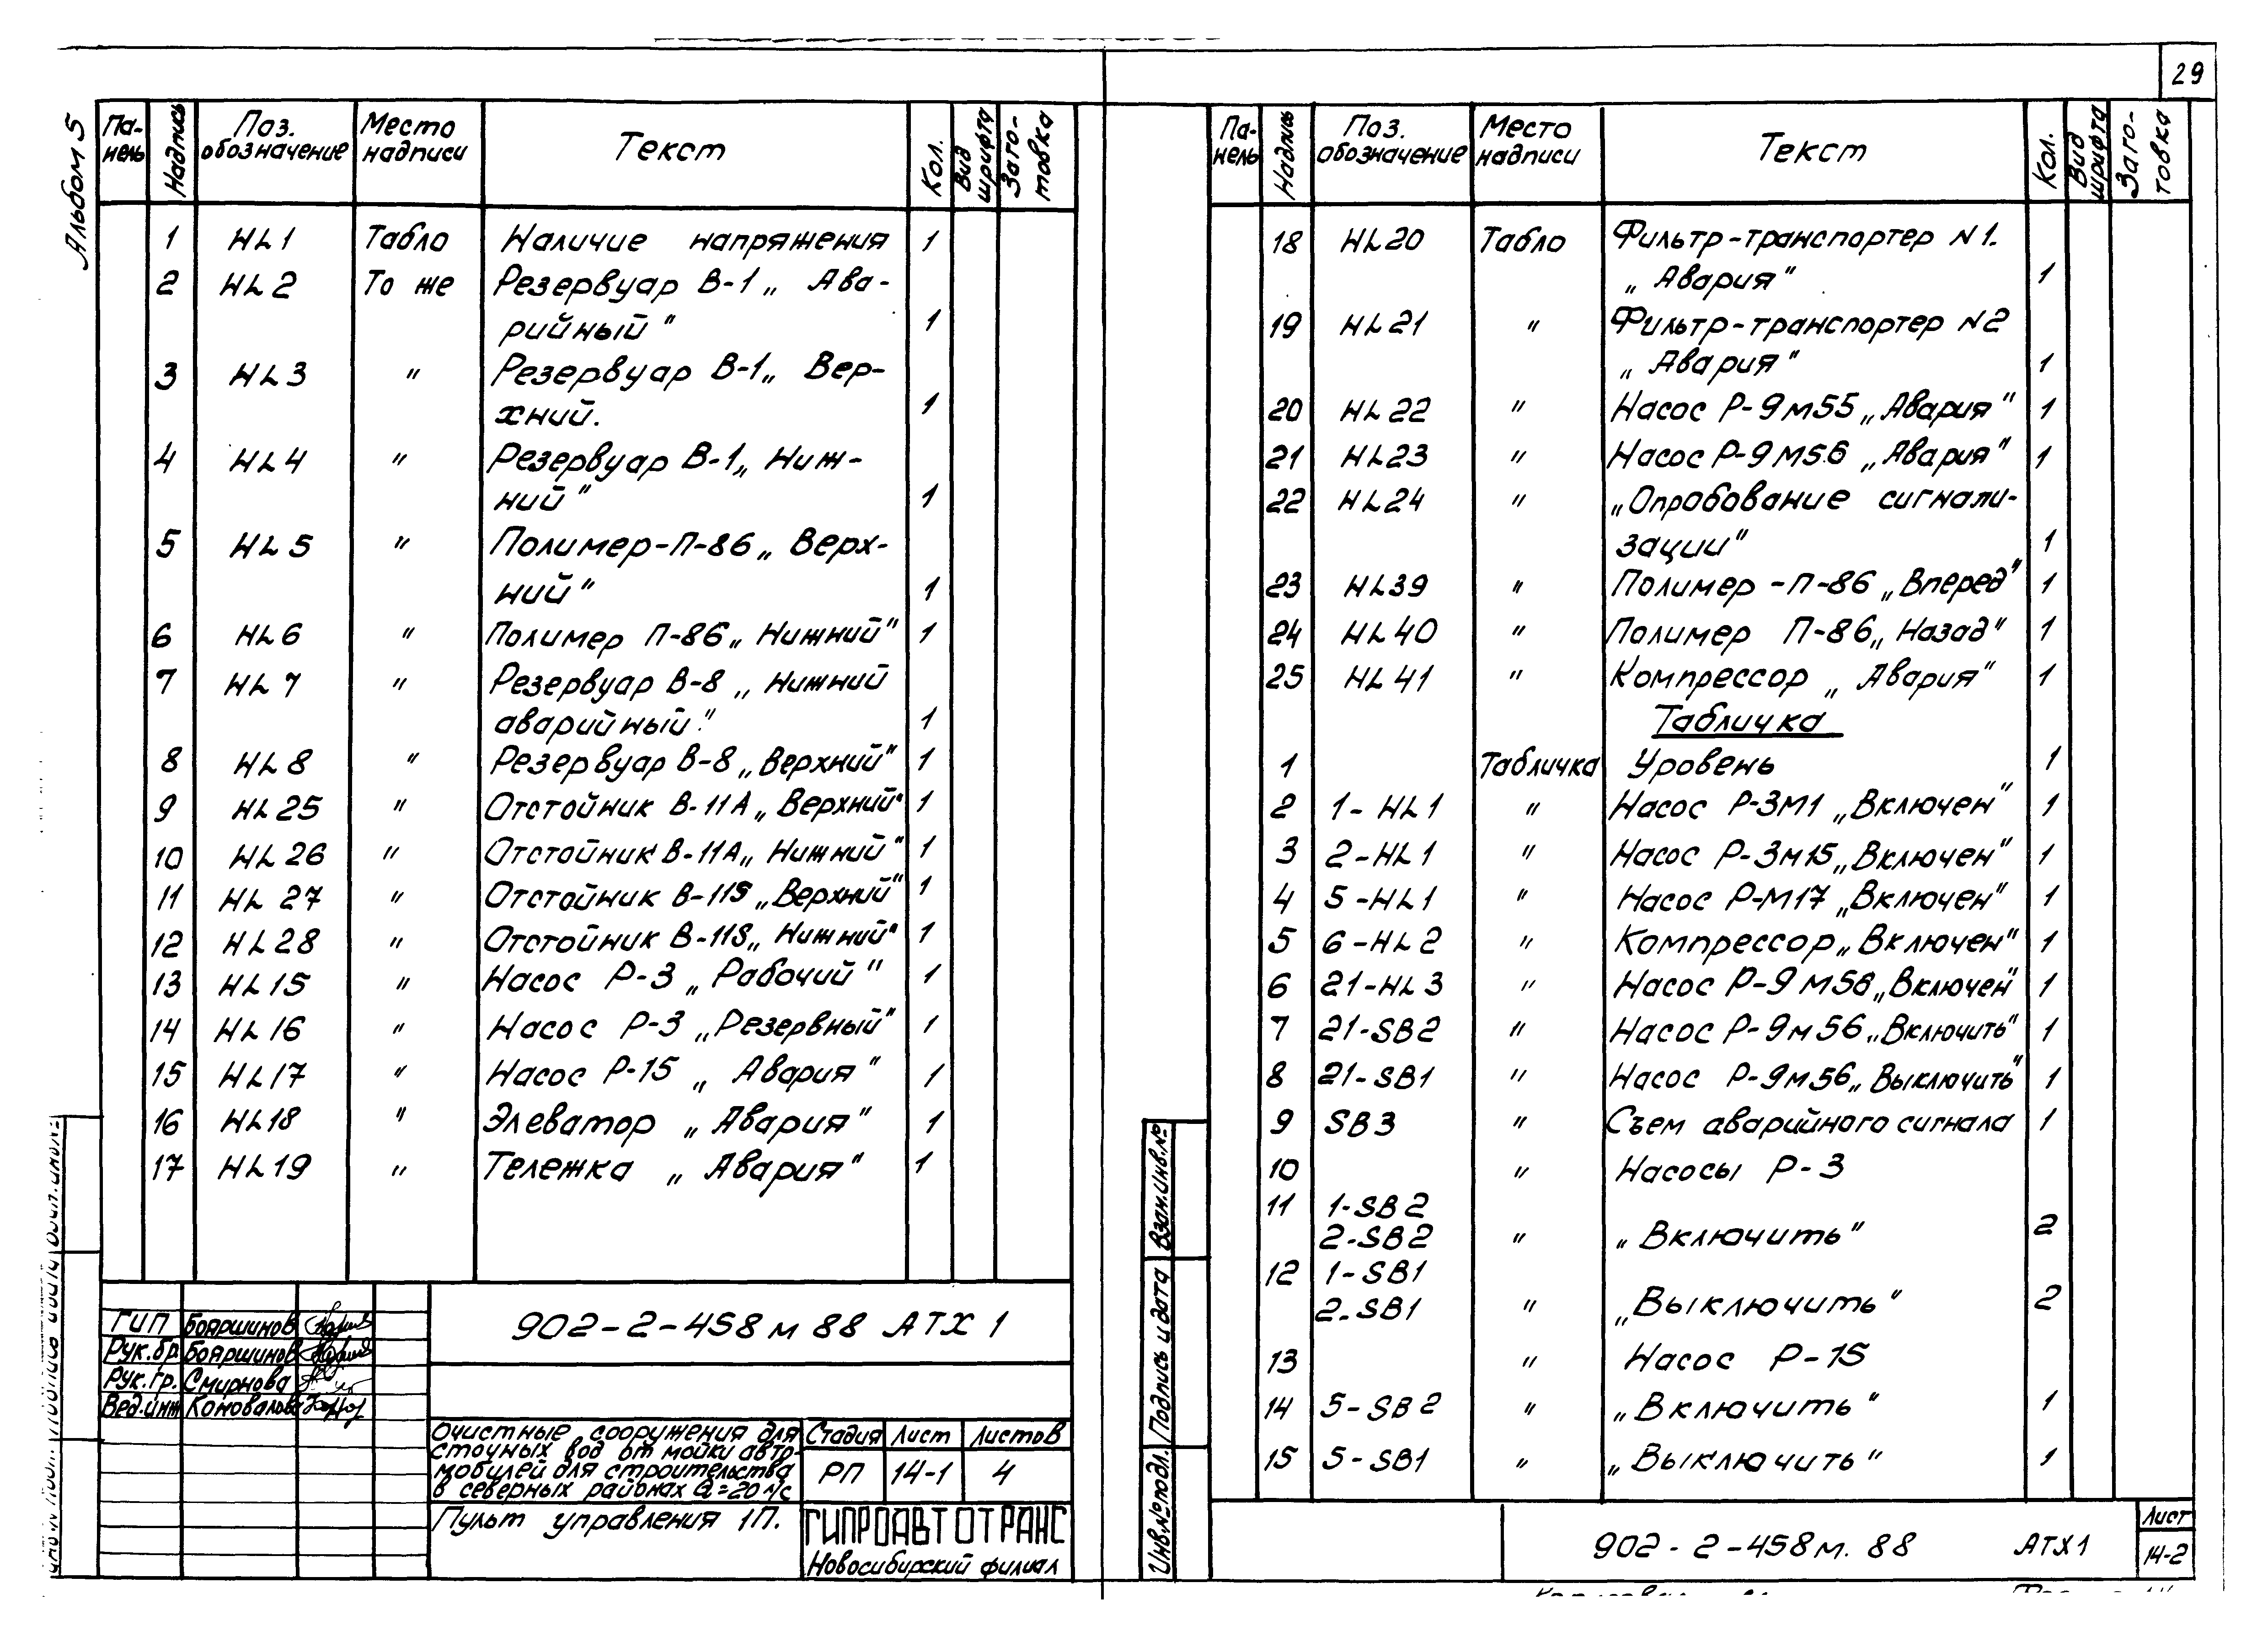 29
Альбом 5
Па-нель Надпись Поз. обозначение Место надписи Текст Кол. Вид шрифта Заго-товка
1 HL1 Табло Наличие напряжения 1
2 HL2 То же Резервуар В-1 „ Ава-
рийный" 1
3 HL3 " Резервуар В-1„ Вер-
хний. 1
4 HL4 " Резервуар В-1„ Ниж-
ний" 1
5 HL5 " Полимер-П-86„ Верх-
ний" 1
6 HL6 " Полимер П-86„ Нижний" 1
7 HL7 " Резервуар В-8 „ Нижний
аварийный." 1
8 HL8 " Резервуар В-8 „Верхний" 1
9 HL25 " Отстойник В-11А „Верхний" 1
10 HL26 " Отстойник В-11А„ Нижний" 1
11 HL27 " Отстойник В-11Б „Верхний" 1
12 HL28 " Отстойник В-11Б„ Нижний" 1
13 HL15 " Насос Р-3 „Рабочий" 1
14 HL16 " Насос Р-3 „Резервный" 1
15 HL17 " Насос Р-15 „ Авария" 1
16 HL18 " Элеватор „Авария" 1
17 HL19 " Тележка „ Авария" 1
ГИП Бояршинов
Рук.бр. Бояршинов
Рук.гр. Смирнова
Вед.инж Коновалов
902-2-458м 88 АТХ 1
Очистные сооружения для
сточных вод от мойки авто-
мобилей для строительства
в северных районах Q=20 л/с
Стадия Лист Листов
РП 14-1 4
Пульт управления 1П.
ГИПРОАВТОТРАНС
Новосибирский филиал
Па-нель Надпись Поз. обозначение Место надписи Текст Кол. Вид шрифта Заго-товка
18 HL20 Табло Фильтр-транспортер N1.
„ Авария" 1
19 HL21 " Фильтр-транспортер N2
„ Авария" 1
20 HL22 " Насос Р-9м55 „Авария" 1
21 HL23 " Насос Р-9М56 „Авария" 1
22 HL24 " „Опробование сигнали-
зации" 1
23 HL39 " Полимер-П-86 „Вперед" 1
24 HL40 " Полимер П-86„ Назад" 1
25 HL41 " Компрессор „ Авария" 1
Табличка
1 Табличка Уровень 1
2 1-HL1 " Насос Р-3М1 „Включен" 1
3 2-HL1 " Насос Р-3м15„Включен" 1
4 5-HL1 " Насос Р-М17 „Включен" 1
5 6-HL2 " Компрессор„Включен" 1
6 21-HL3 " Насос Р-9м56„Включен" 1
7 21-SB2 " Насос Р-9м56„Включить" 1
8 21-SB1 " Насос Р-9м56„Выключить" 1
9 SB3 " Съем аварийного сигнала 1
10 " Насосы Р-3
11 1-SB2
2-SB2 " „Включить" 2
12 1-SB1
2-SB1 " „Выключить" 2
13 " Насос Р-15
14 5-SB2 " „Включить" 1
15 5-SB1 " „Выключить" 1
Взам.инв.№
Подпись и дата
Инв.№подл.
902-2-458м. 88 АТХ1
Лист
14-2